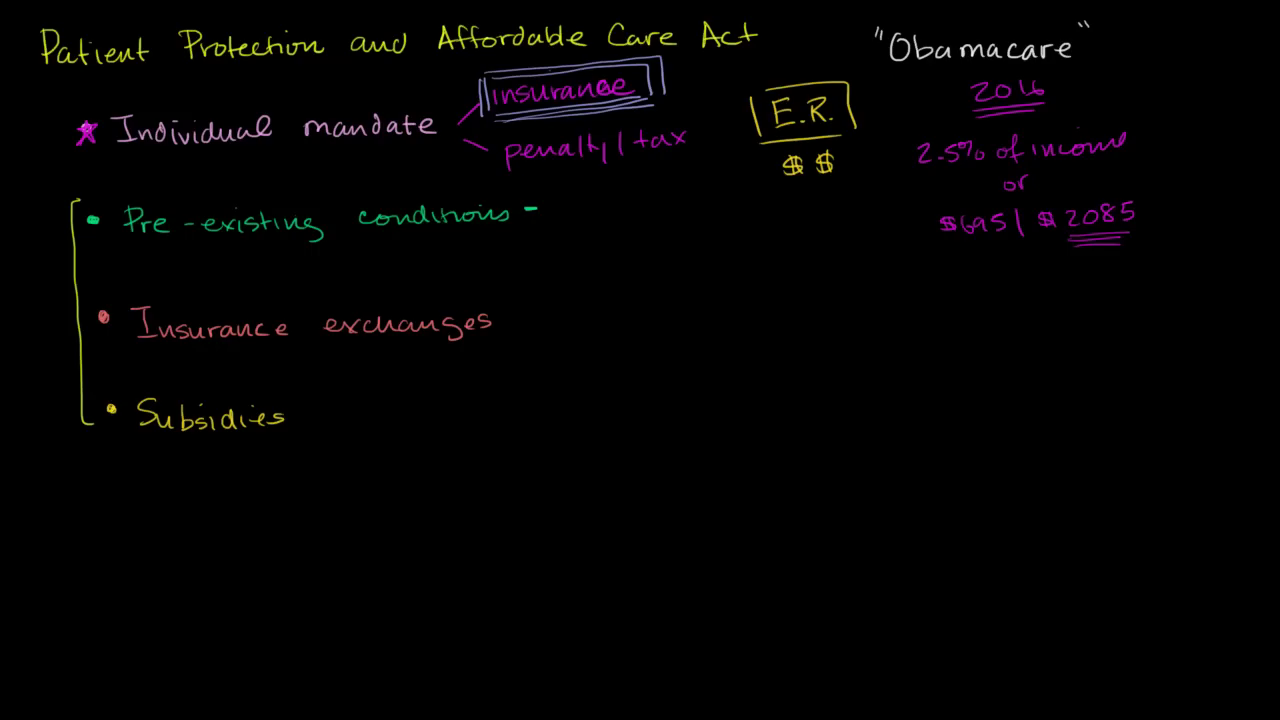 Patient Protection and Affordable Care Act
"Obamacare"
Individual mandate
insurance
penalty/tax
E.R.
$ $
2016
2.5% of income
or
$695/ $2085
Pre-existing conditions -
Insurance exchanges
Subsidies